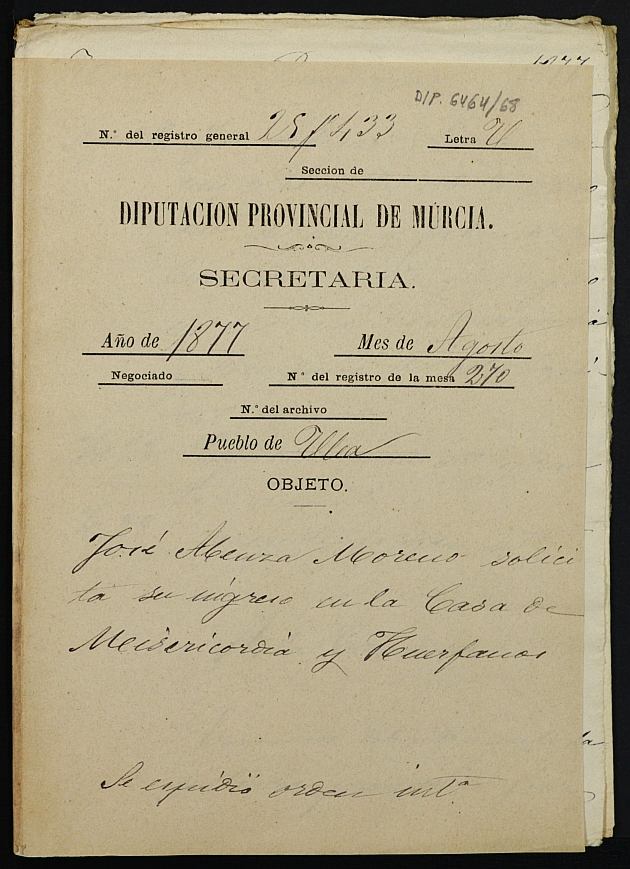 DIP. 6464/68
N.º del registro general 25/433 Letra U
Seccion de
DIPUTACION PROVINCIAL DE MURCIA.
SECRETARIA.
Año de 1877 Mes de Agosto
Negociado N.º del registro de la mesa 270
N.º del archivo
Pueblo de Ulea
OBJETO.
José Abenza Moreno solici
ta su ingreso en la Casa de
Misericordia y Huerfanos
Se espidió orden intª